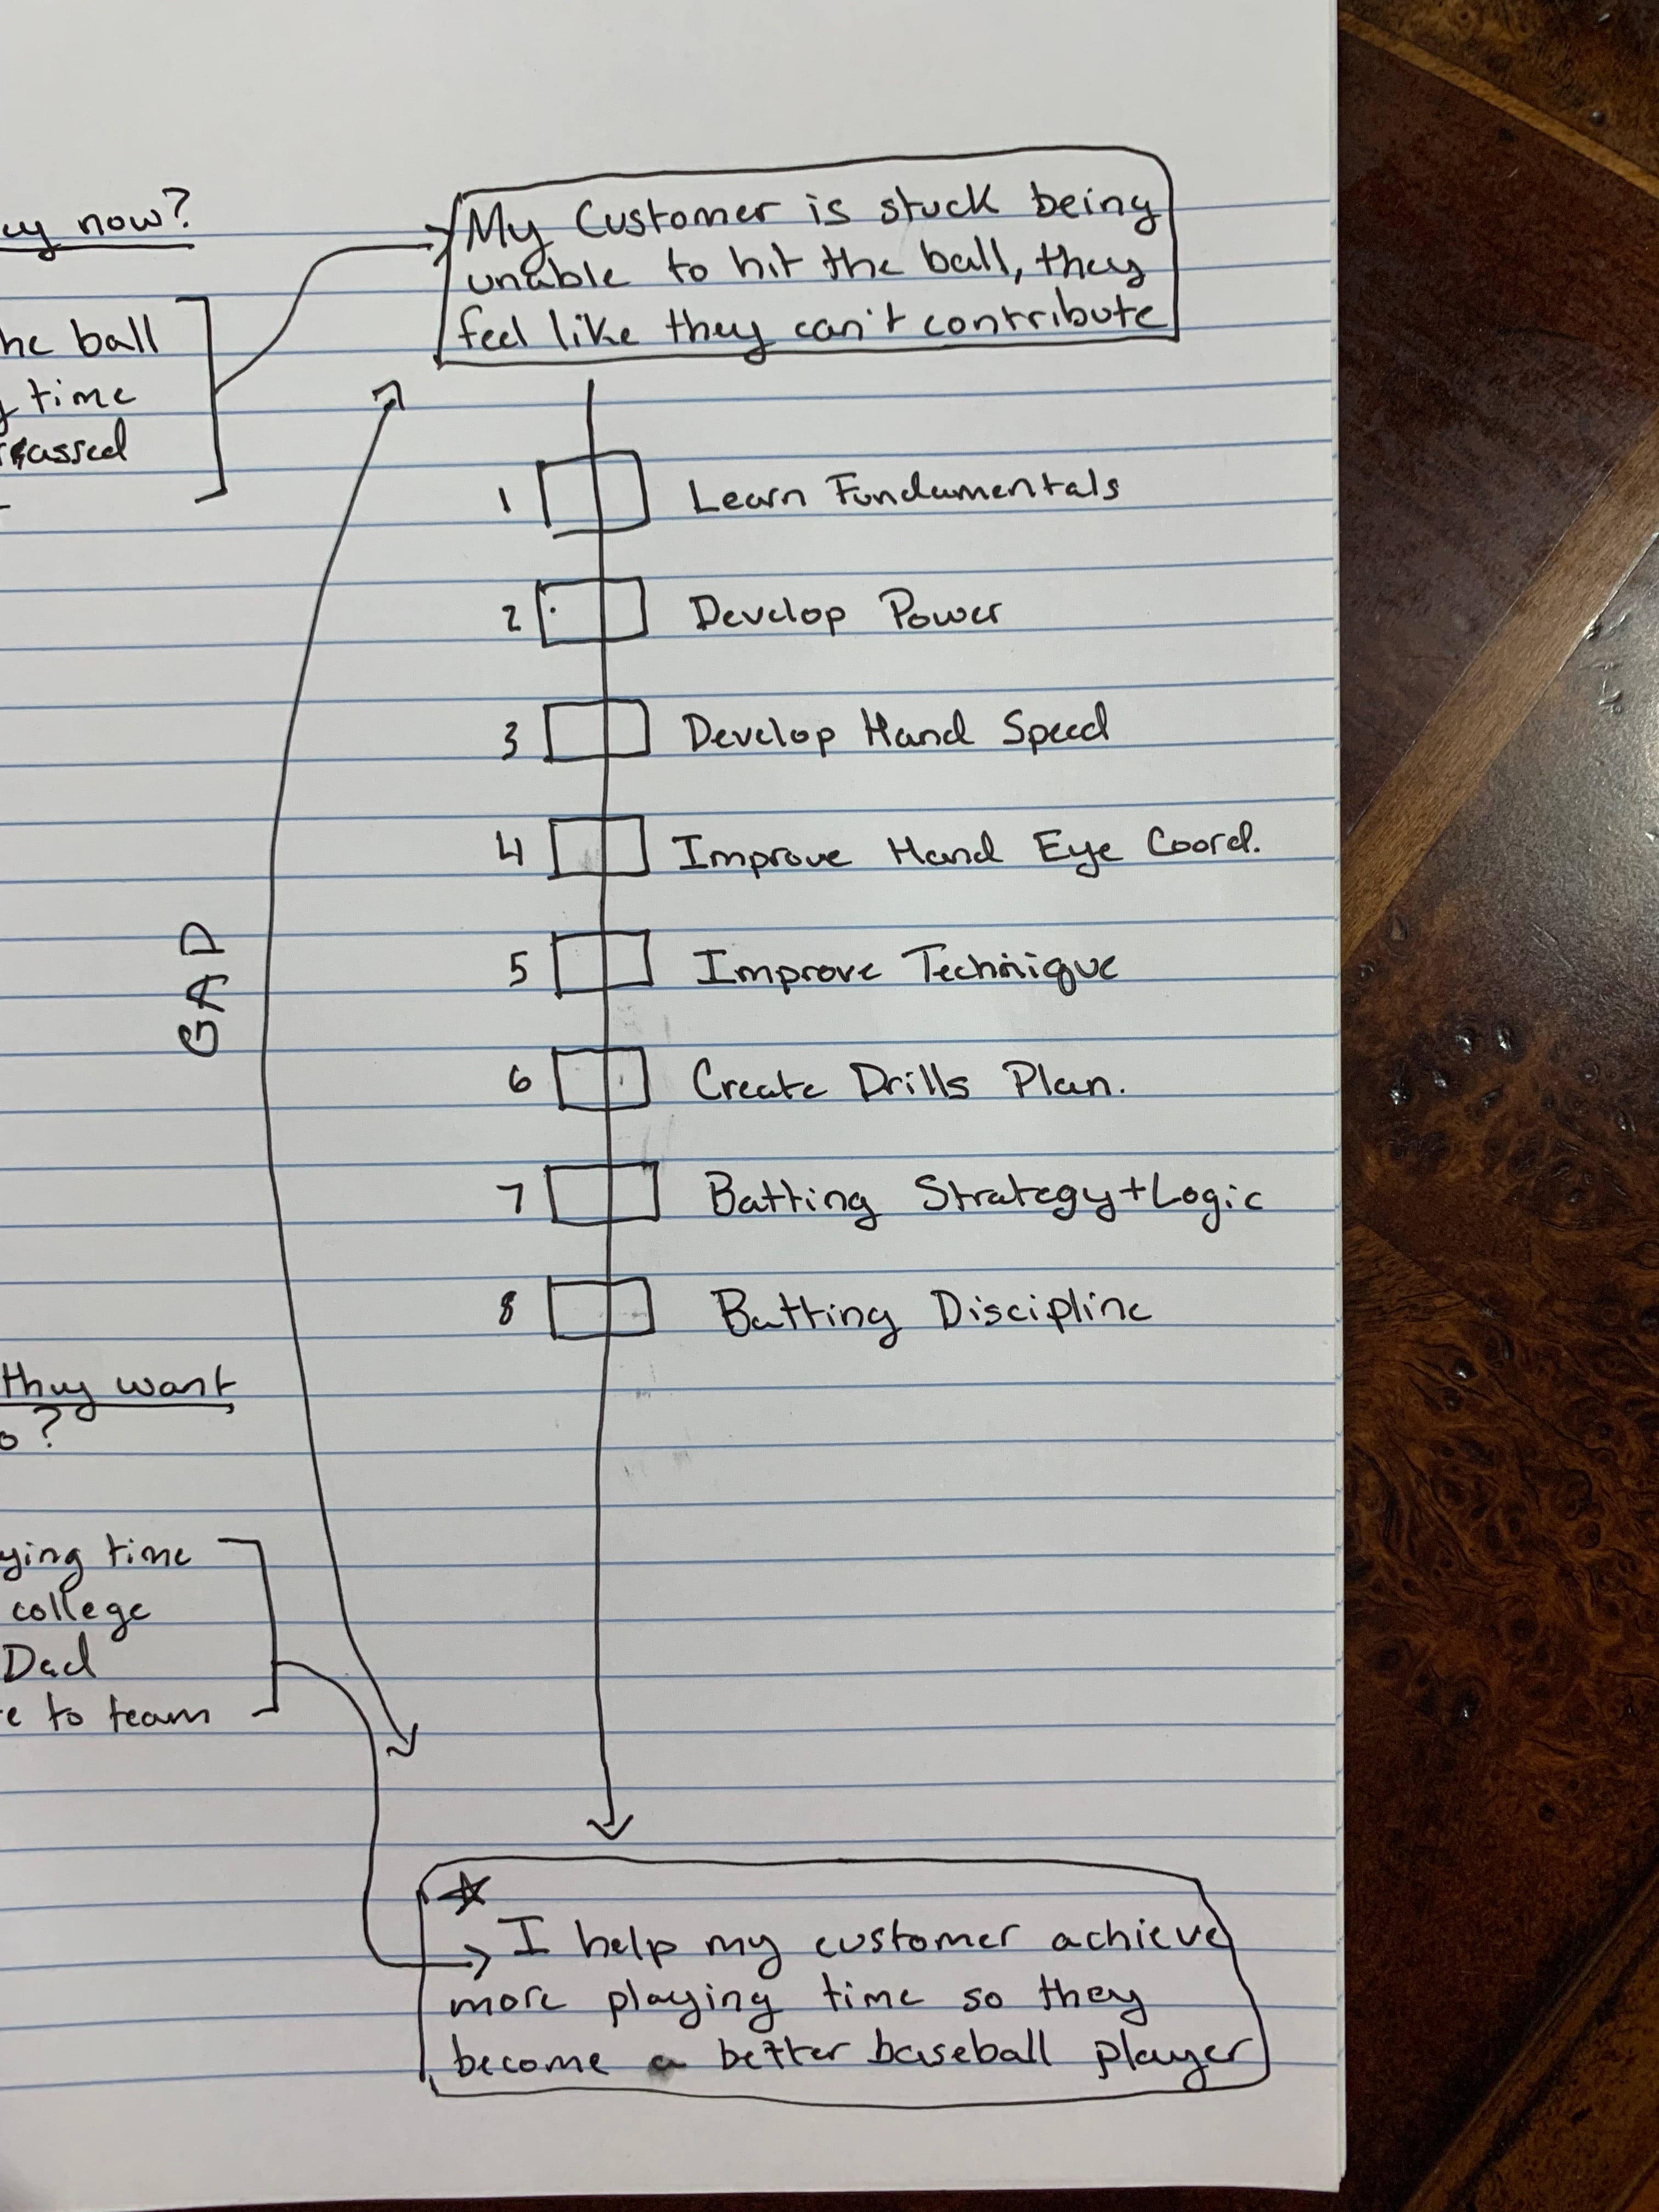 now?
My Customer is stuck being
unable to hit the ball, they
feel like they can't contribute
ball
time
1 Learn Fundamentals
2 Develop Power
3 Develop Hand Speed
4 Improve Hand Eye Coord.
GAP
5 Improve Technique
6 Create Drills Plan.
7 Batting Strategy+Logic
8 Batting Discipline
they want
?
time
college
Dad
to team
I help my customer achieve
more playing time so they
become a better baseball player